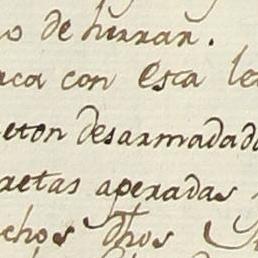 o de herrar.
aca con esta le
eton desarmadad
retas aperadas
chos dhos